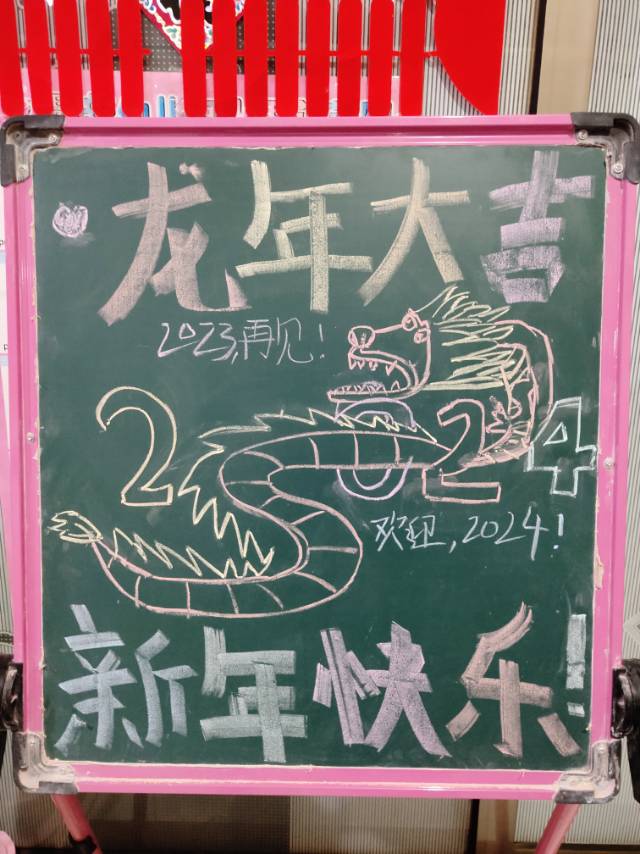 龙年大吉
2023,再见!
2024
欢迎,2024!
新年快乐!